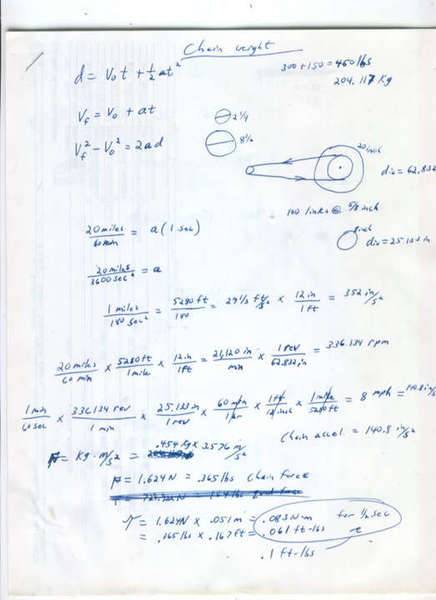 Chain weight
d = V₀t + ½at²
300 + 150 = 450 lbs
204.117 Kg
Vf = V₀ + at
2 1/4
Vf² - V₀² = 2ad
20 inch
dia = 62.832
100 links @ 5/8 inch
8 inch
dia = 25.133 in
20 miles / 60 min = a (1 sec)
20 miles / 3600 sec² = a
1 miles / 180 sec² = 5280 ft / 180 = 29 1/3 ft/s² × 12 in / 1 ft = 352 in/s²
20 miles / 60 min × 5280 ft / 1 mile × 12 in / 1 ft = 21,120 in / min × 1 rev / 62.832 in = 336.134 rpm
1 min / 60 sec × 336.134 rev / 1 min × 25.133 in / 1 rev × 60 min / 1 hr × 1 ft / 12 inch × 1 mile / 5280 ft = 8 mph = 140.8 in/s
Chain accel = 140.8 in/s²
F = Kg · m/s² = .454 kg × 3.576 m/s²
F = 1.624 N = .365 lbs Chain force
τ = 1.624 N × .051 m = .083 N·m for ½ sec
= .365 lbs × .167 ft = .061 ft-lbs
.1 ft-lbs